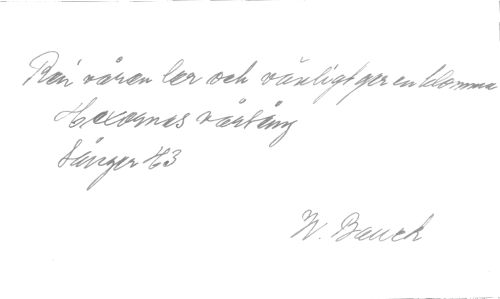 Ren våren ler och vänligt ger en blomma
Häxornas vårsång
Sånger H3
W. Bauck